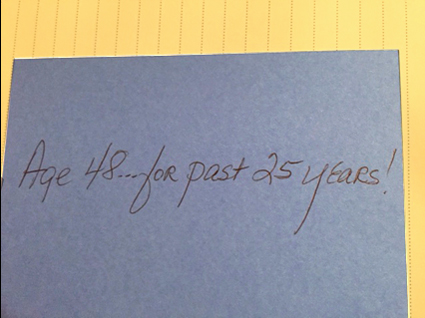 Age 48...for past 25 years!